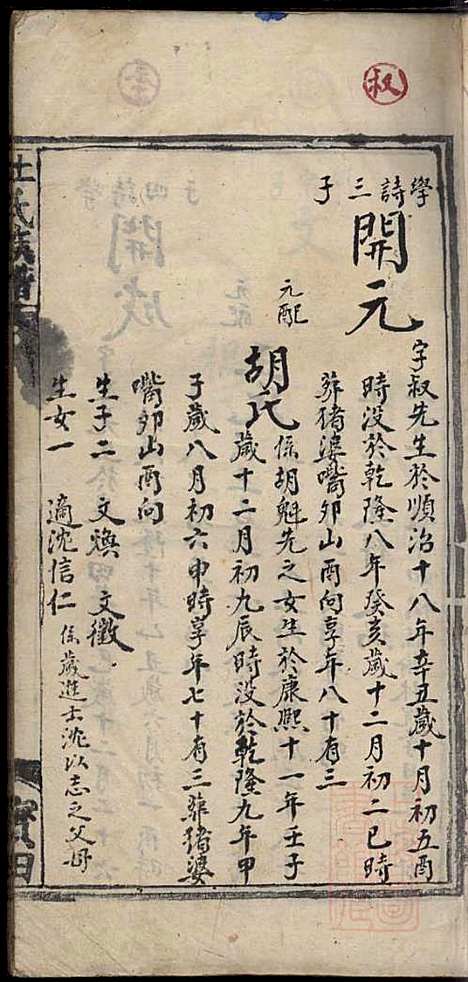 叔
學詩三子
開元
字叔先生於順治十八年辛丑歲十月初五酉
時没於乾隆八年癸亥歲十二月初二巳時
葬猪婆嘴卯山酉向享年八十有三
元配
胡氏
係胡魁先之女生於康熙十一年壬子
歲十二月初九辰時没於乾隆九年甲
子歲八月初六申時享年七十有三葬猪婆
嘴卯山酉向
生子二 文煥 文徵
生女一 適沈信仁 係歲進士沈以志之父
氏族譜